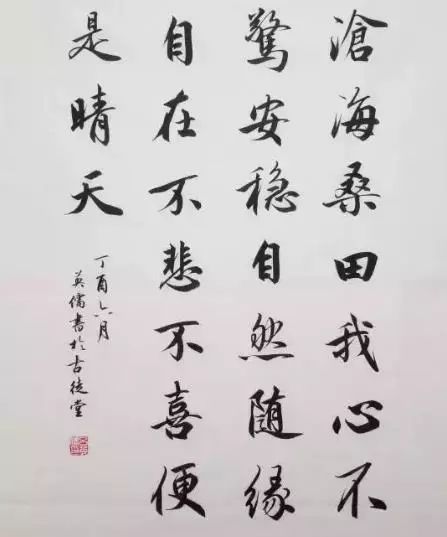 滄海桑田我心不
驚安稳自然随緣
自在不悲不喜便
是晴天
丁酉六月
英儒書於古徒堂